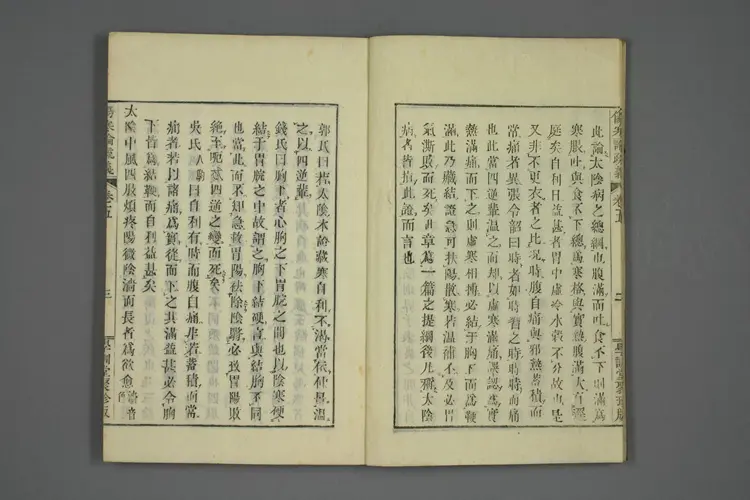 此論太陰病之總綱也腹滿而吐食不下則滿爲
寒脹吐與食不下總爲寒格與實熱腹滿大有逕
庭矣自利日益甚者胃中虛冷水穀不分故也是
又非不更衣者之比況時腹自痛與邪熱蓄積而
常痛者異張令韶曰時者如時習之時時時而痛
也此當四逆輩溫之而却以虛寒滿痛誤認爲實
熱滿痛而下之則虛寒相搏必結于胸下而痞
滿此乃臟結證急可扶陽散寒若溫補不及必胃
氣澌敗而死矣此章爲一篇之提綱後凡稱太陰
病者皆指此證而言也
傷寒論疏義
卷五
二
學訓堂聚珍版
郭氏曰若太陰本論該寒自利不渴當依仲景溫
之以四逆輩
錢氏曰胸下者心胸之下胃脘之間也以陰寒硬
結于胃脘之中故謂之胸下結硬言與結胸不同
也當此而不知急救胃陽祛除陰翳必致胃陽敗
絕主呃逆四逆之變而死矣
吳氏人駒曰自利有時而腹自痛非若蓄積而常
痛者若以諸痛爲實從而下之其滿益甚必令胸
下皆爲結鞕而自利益甚矣
太陰中風四肢煩疼陽微陰濇而長者爲欲愈濇音
色
傷寒論疏義
卷五
三
學訓堂聚珍版